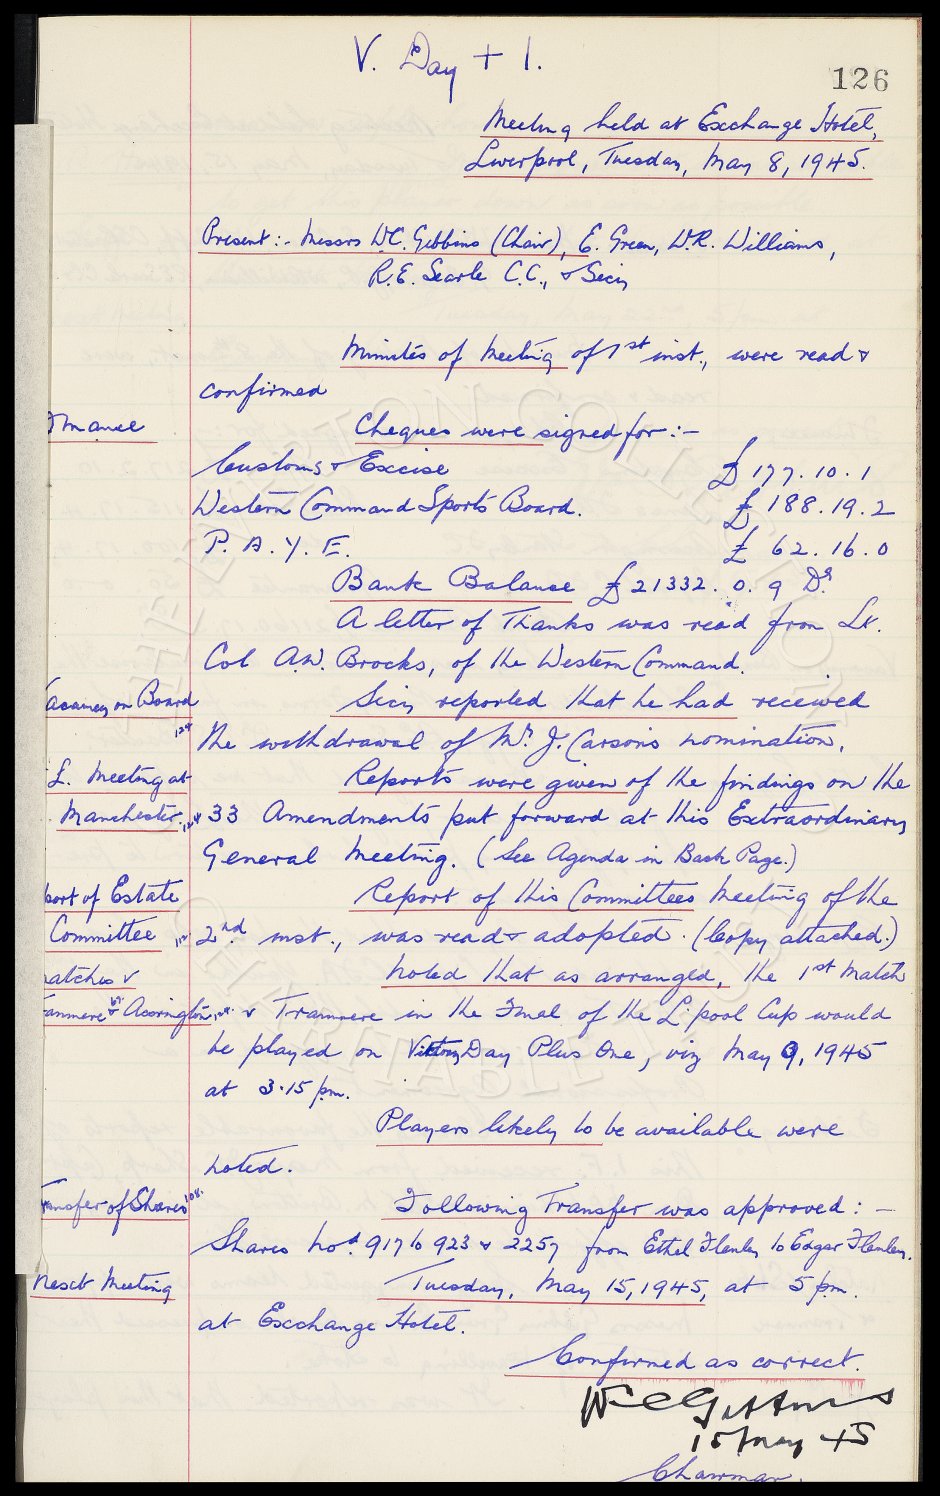 V. Day + 1.
126
Meeting held at Exchange Hotel,
Liverpool, Tuesday, May 8, 1945.
Present :- Messrs W.C. Gibbins (Chair), E. Green, W.R. Williams,
R.E. Searle C.C., & Secy
Minutes of Meeting of 1st inst., were read &
confirmed
Cheques were signed for :-
Customs & Excise £177.10.1
Western Command Sports Board. £188.19.2
P. A. Y. E. £62.16.0
Bank Balance £21332. 0. 9 Dr.
A letter of Thanks was read from Lt.
Col A.W. Brocks, of the Western Command.
acancy on Board
Secy reported that he had received
the withdrawal of Mr. J. Carson's nomination.
F. Meeting at
Manchester.
Reports were given of the findings on the
33 Amendments put forward at this Extraordinary
General Meeting. (See Agenda in Back Page.)
port of Estate
Committee
Report of this Committees Meeting of the
2nd. inst., was read & adopted. (Copy attached.)
atches v
anmere & Accrington
Noted that as arranged, the 1st Match
v Tranmere in the Final of the L'pool Cup would
be played on Victory Day Plus One, viz May 9, 1945
at 3.15 pm.
Players likely to be available were
noted.
ransfer of Shares
Following Transfer was approved : -
Shares Nos. 917 to 923 & 2257 from Ethel Flenley to Edgar Flenley.
Next Meeting
Tuesday, May 15, 1945, at 5 pm.
at Exchange Hotel.
Confirmed as correct.
W C Gibbins
15 May 45
Chairman.
THE EVERTON COLLECTION
CHARITABLE TRUST